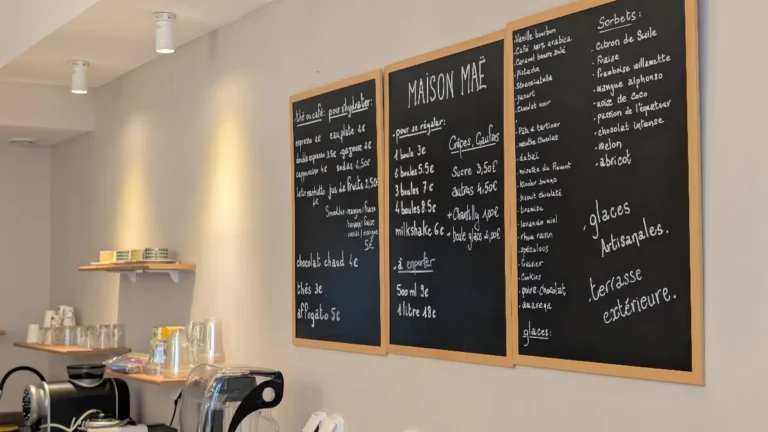 thé ou café: pour s'hydrater:
espresso 2€ eau plate 2€
double espresso 3.5€ gazeuse 2€
cappuccino 4€ sodas 2,50€
latte macchiato jus de fruits 2,50€
4€
Smoothie
5€
chocolat chaud 4€
thés 3€
affogato 5€
MAISON MAË
pour se régaler:
1 boule 3€
2 boules 5.5€
3 boules 7€
4 boules 8.5€
milkshake 6€
Crêpes, Gaufres
Sucre 3,50€
autres 4,50€
+ Chantilly 1,00€
+ boule glace 2,00€
à emporter
500 ml 9€
1 litre 18€
Vanille bourbon
Café 100% arabica
Caramel beurre salé
Pistache
Stracciatella
yaourt
Chocolat noir
Pâte à tartiner
menthe chocolat
noisette du Piémont
Kinder bueno
biscuit chocolaté
tiramisu
lavande miel
rhum raisin
spéculoos
Cookies
poire chocolat
amarena
glaces:
Sorbets:
Citron de Sicile
Fraise
Framboise willamette
Mangue alphonso
noix de coco
passion de l'équateur
chocolat intense
melon
abricot
glaces
Artisanales.
terrasse
extérieure.